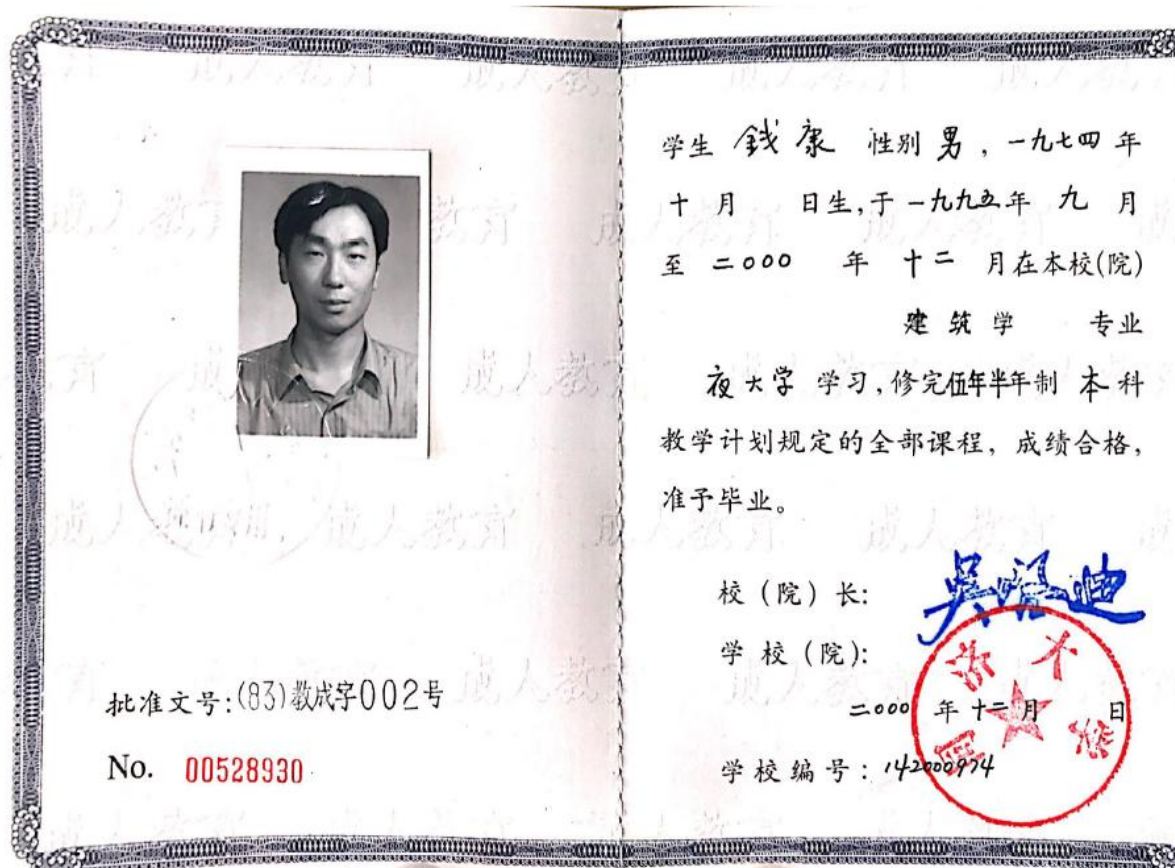 批准文号:(83)教成字002号
No. 00528930
学生 钱康 性别 男 , 一九七四 年
十 月 日生,于 一九九五 年 九 月
至 二000 年 十二 月在本校(院)
建筑学 专业
夜大学 学习,修完伍年半年制 本 科
教学计划规定的全部课程, 成绩合格,
准予毕业。
校 (院) 长: 吴启迪
学 校 (院): 同济大学
二000 年 十二 月 日
学 校 编 号 : 142000974
成人教育